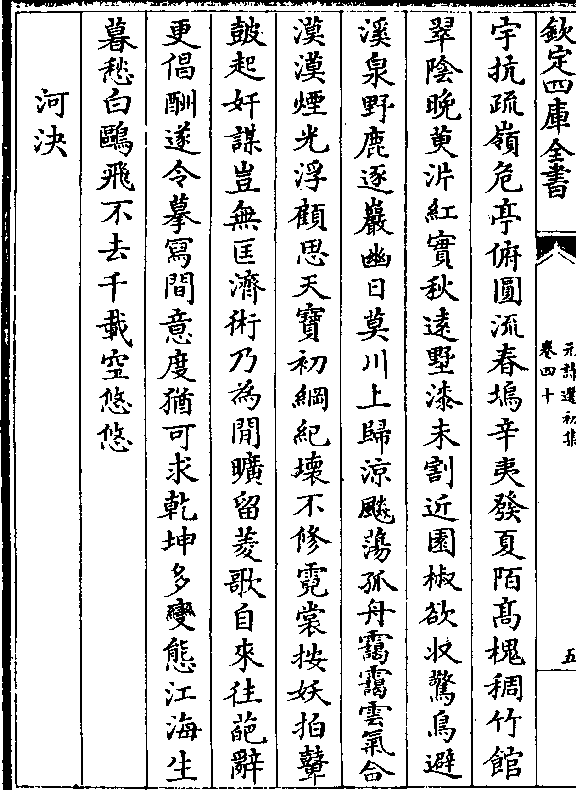 欽定四庫全書
元詩選初集
卷四十
五
宇抗疏嶺危亭俯圓流春塢辛夷發夏陌髙槐稠竹館
翠陰晚萸沜紅實秋逺墅漆未割近園椒欲收驚鳥避
溪泉野鹿逐巖幽日莫川上歸凉飈蕩孤舟靄靄雲氣合
漠漠煙光浮顧思天寶初綱紀壊不修霓裳按妖拍鼙
鼓起奸謀豈無匡濟術乃為閒曠留菱歌自來往葩辭
更倡酬遂令摹寫間意度猶可求乾坤多變態江海生
暮愁白鷗飛不去千載空悠悠
河決